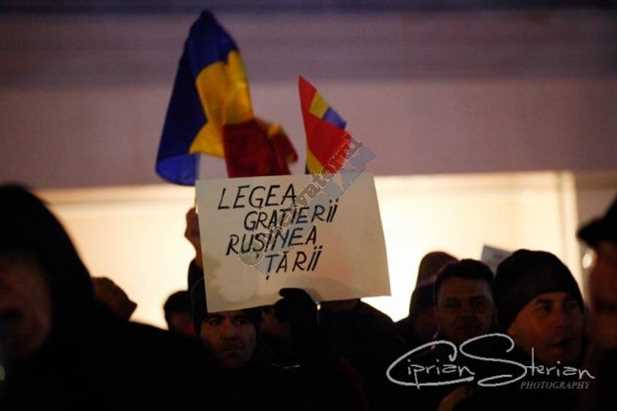 LEGEA
GRAȚIERII
RUȘINEA
ȚĂRII
Ciprian Sterian
PHOTOGRAPHY